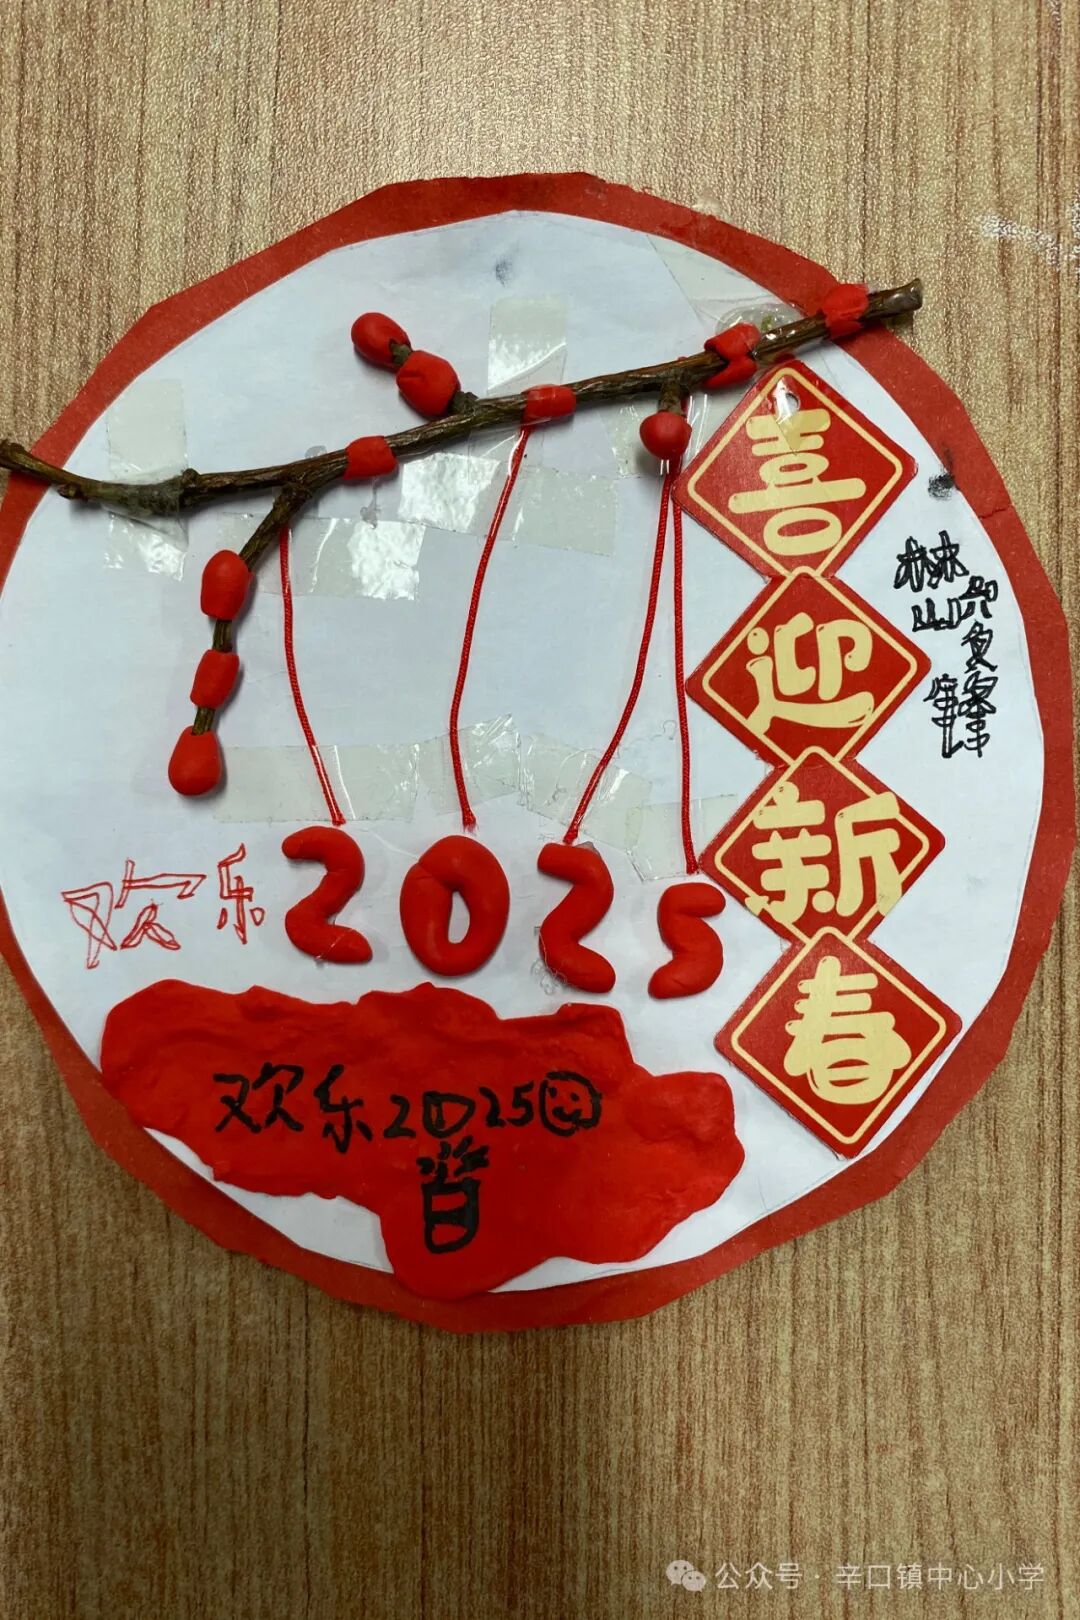 喜
迎
新
春
欢乐 2025
欢乐2025
公众号·辛口镇中心小学